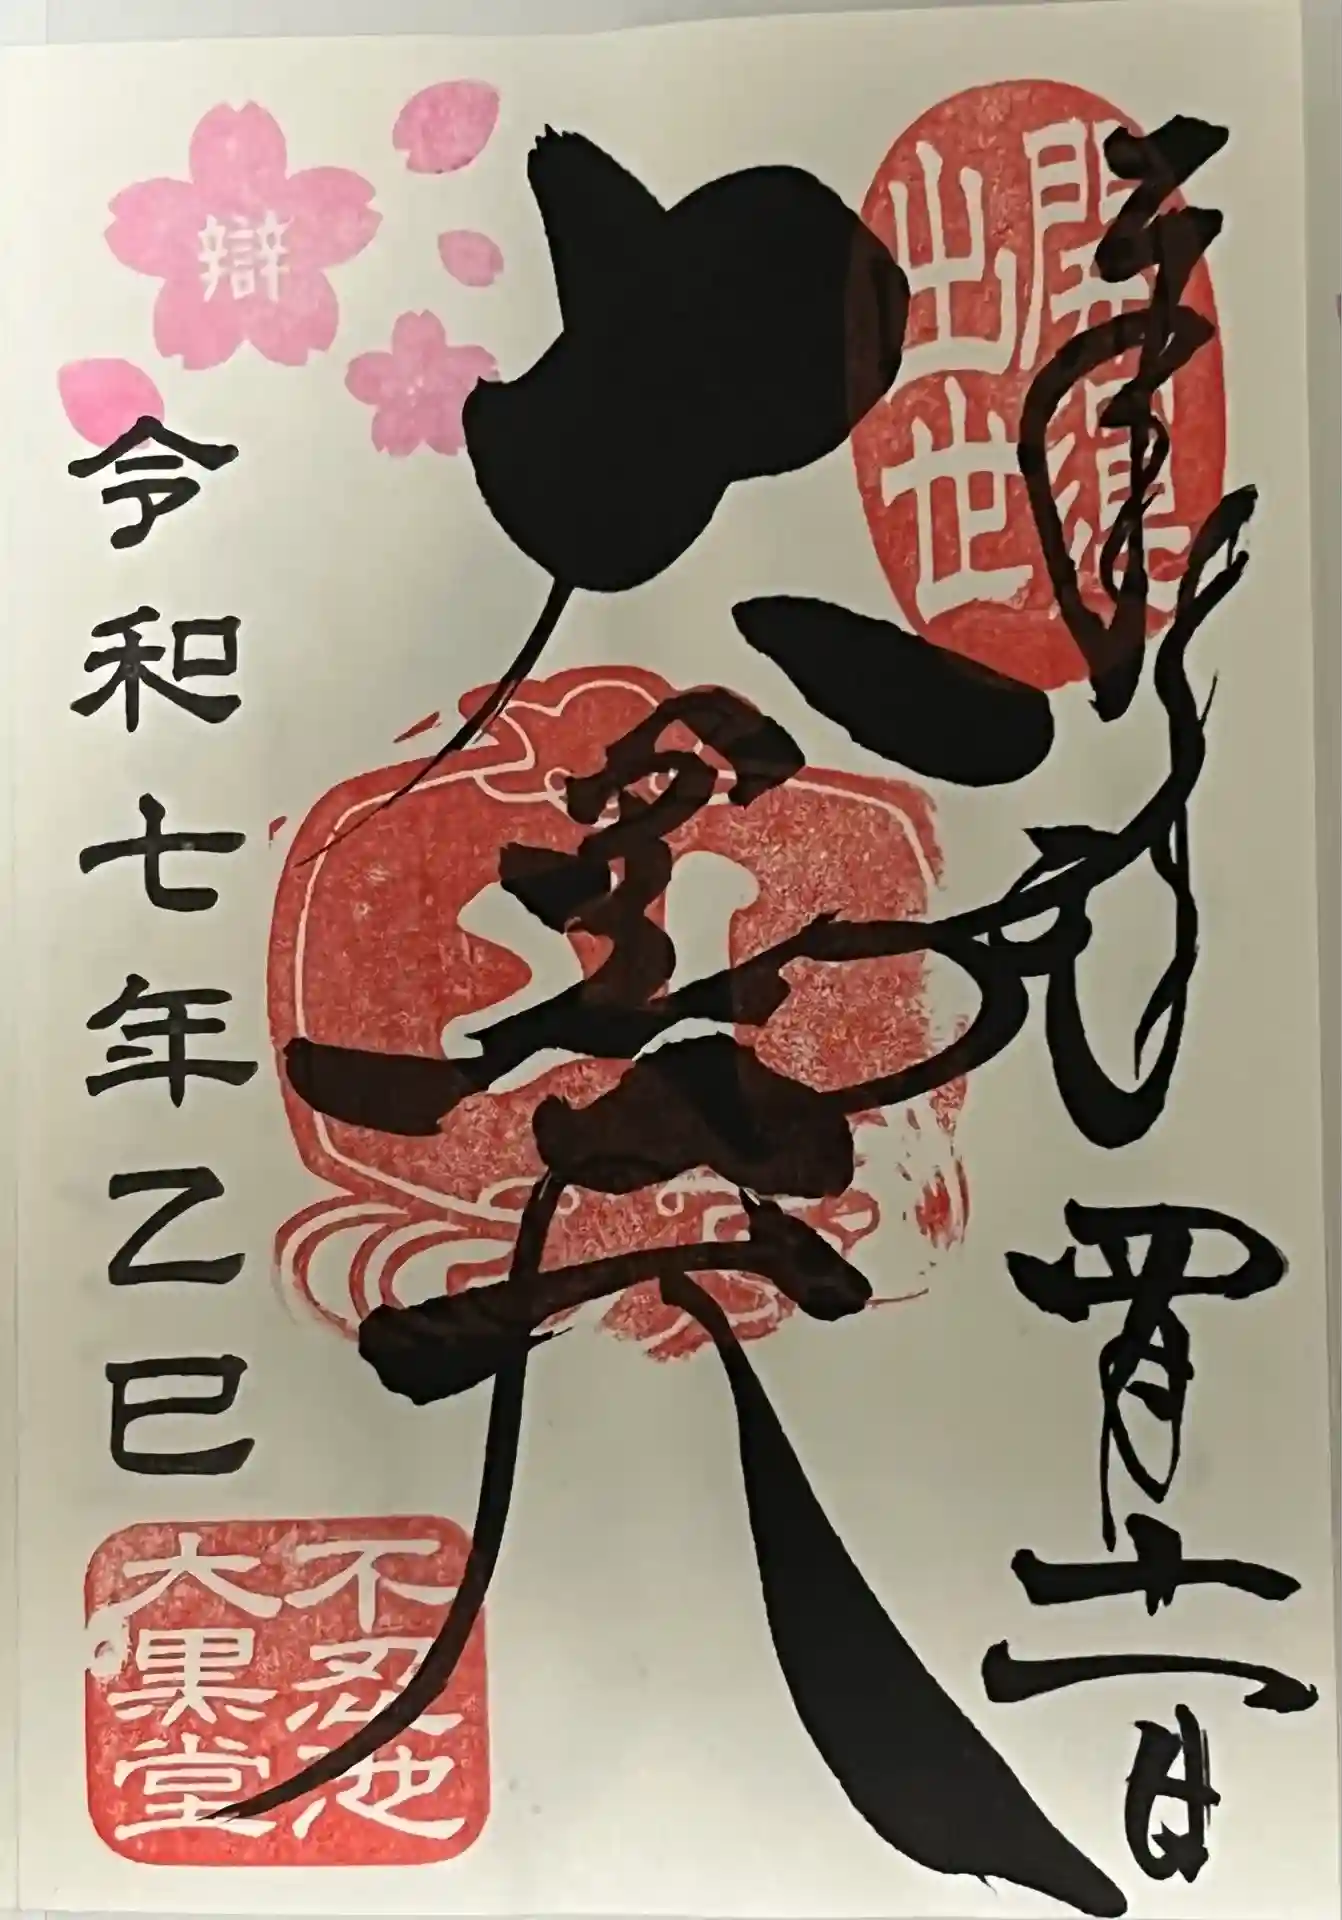 奉拝
四月十一日
開運
出世
大黒天
辯
令和七年乙巳
不忍池
大黒堂